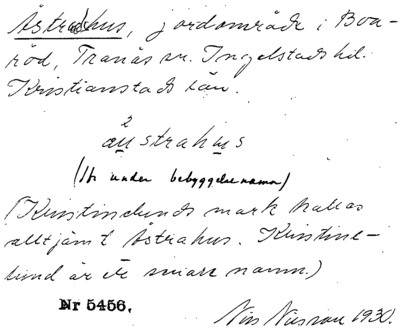 Åstrahus, jordområde i Boa-
röd, Tranås sn. Ingelstads hd.
Kristianstads län.
2
åustrahus
(Jfr under bebyggelsenamn)
(Kristinelunds mark kallas
alltjämt Åstrahus. Kristine-
lund är ett senare namn.)
Nr 5456.
Nils Nilsson 1930.